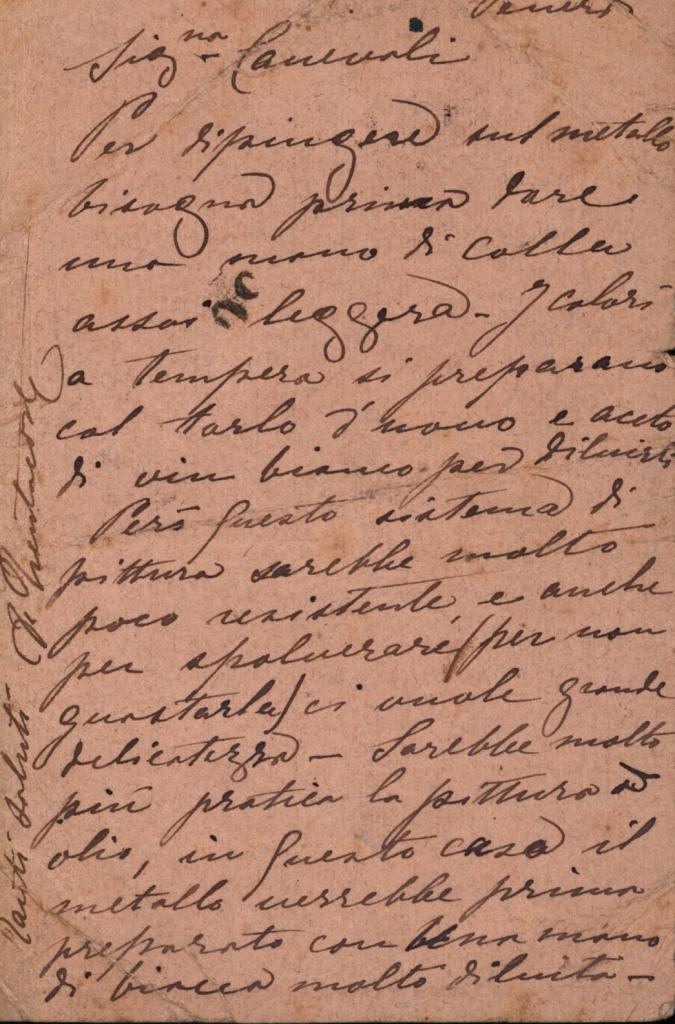 Signa Canevali
Per dipingere sul metallo
bisogna prima dare
una mano di colla
assai leggera - I colori
a tempera si preparano
col torlo d'uovo e aceto
di vin bianco per diluirli
Però questo sistema di
pittura sarebbe molto
poco resistente, e anche
per spolverare (per non
guastarla) ci vuole grande
delicatezza - Sarebbe molto
più pratica la pittura ad
olio, in questo caso il
metallo verrebbe prima
preparato con una mano
di biacca molto diluita -
Tanti saluti